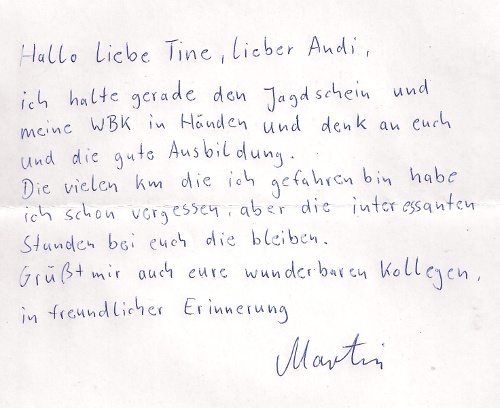 Hallo liebe Tine, lieber Andi,
ich halte gerade den Jagdschein und
meine WBK in Händen und denk an euch
und die gute Ausbildung.
Die vielen km die ich gefahren bin habe
ich schon vergessen, aber die interessanten
Stunden bei euch die bleiben.
Grüßt mir auch eure wunderbaren Kollegen,
in freundlicher Erinnerung
Martin